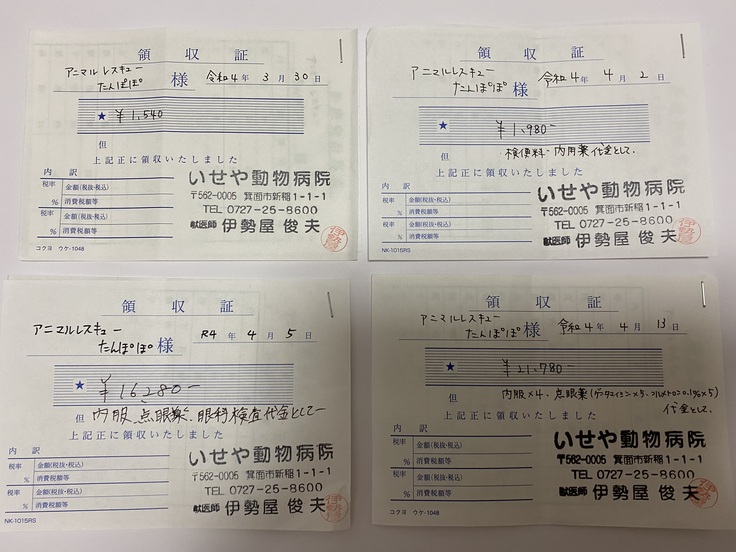 領収証
アニマルレスキュー
たんぽぽ 様 令和4年3月30日
★ ¥1,540
但
上記正に領収いたしました
内訳
税率 金額(税抜・税込)
% 消費税額等
税率 金額(税抜・税込)
% 消費税額等
いせや動物病院
〒562-0005 箕面市新稲1-1-1
TEL 0727-25-8600
獣医師 伊勢屋 俊夫
伊勢屋
コクヨ ウケ-1048
領収証
アニマルレスキュー
たんぽぽ 様 令和4年4月2日
★ ¥1,980-
但 検便料・内用薬代金として.
上記正に領収いたしました
内訳
税率 金額(税抜・税込)
% 消費税額等
税率 金額(税抜・税込)
% 消費税額等
いせや動物病院
〒562-0005 箕面市新稲1-1-1
TEL 0727-25-8600
獣医師 伊勢屋 俊夫
伊勢屋
NK-1015RS
領収証
アニマルレスキュー
たんぽぽ 様 R4年4月5日
★ ¥16,280-
但 内服、点眼薬、眼科検査代金として
上記正に領収いたしました
内訳
税率 金額(税抜・税込)
% 消費税額等
税率 金額(税抜・税込)
% 消費税額等
いせや動物病院
〒562-0005 箕面市新稲1-1-1
TEL 0727-25-8600
獣医師 伊勢屋 俊夫
伊勢屋
NK-1015RS
領収証
アニマルレスキュー
たんぽぽ 様 令和4年4月13日
★ ¥21,780-
但 内服×4、点眼薬(ゲンタマイシン×5、フルメトロン0.1%×5)
代金として.
上記正に領収いたしました
内訳
税率 金額(税抜・税込)
% 消費税額等
税率 金額(税抜・税込)
% 消費税額等
いせや動物病院
〒562-0005 箕面市新稲1-1-1
TEL 0727-25-8600
獣医師 伊勢屋 俊夫
伊勢屋
コクヨ ウケ-1048